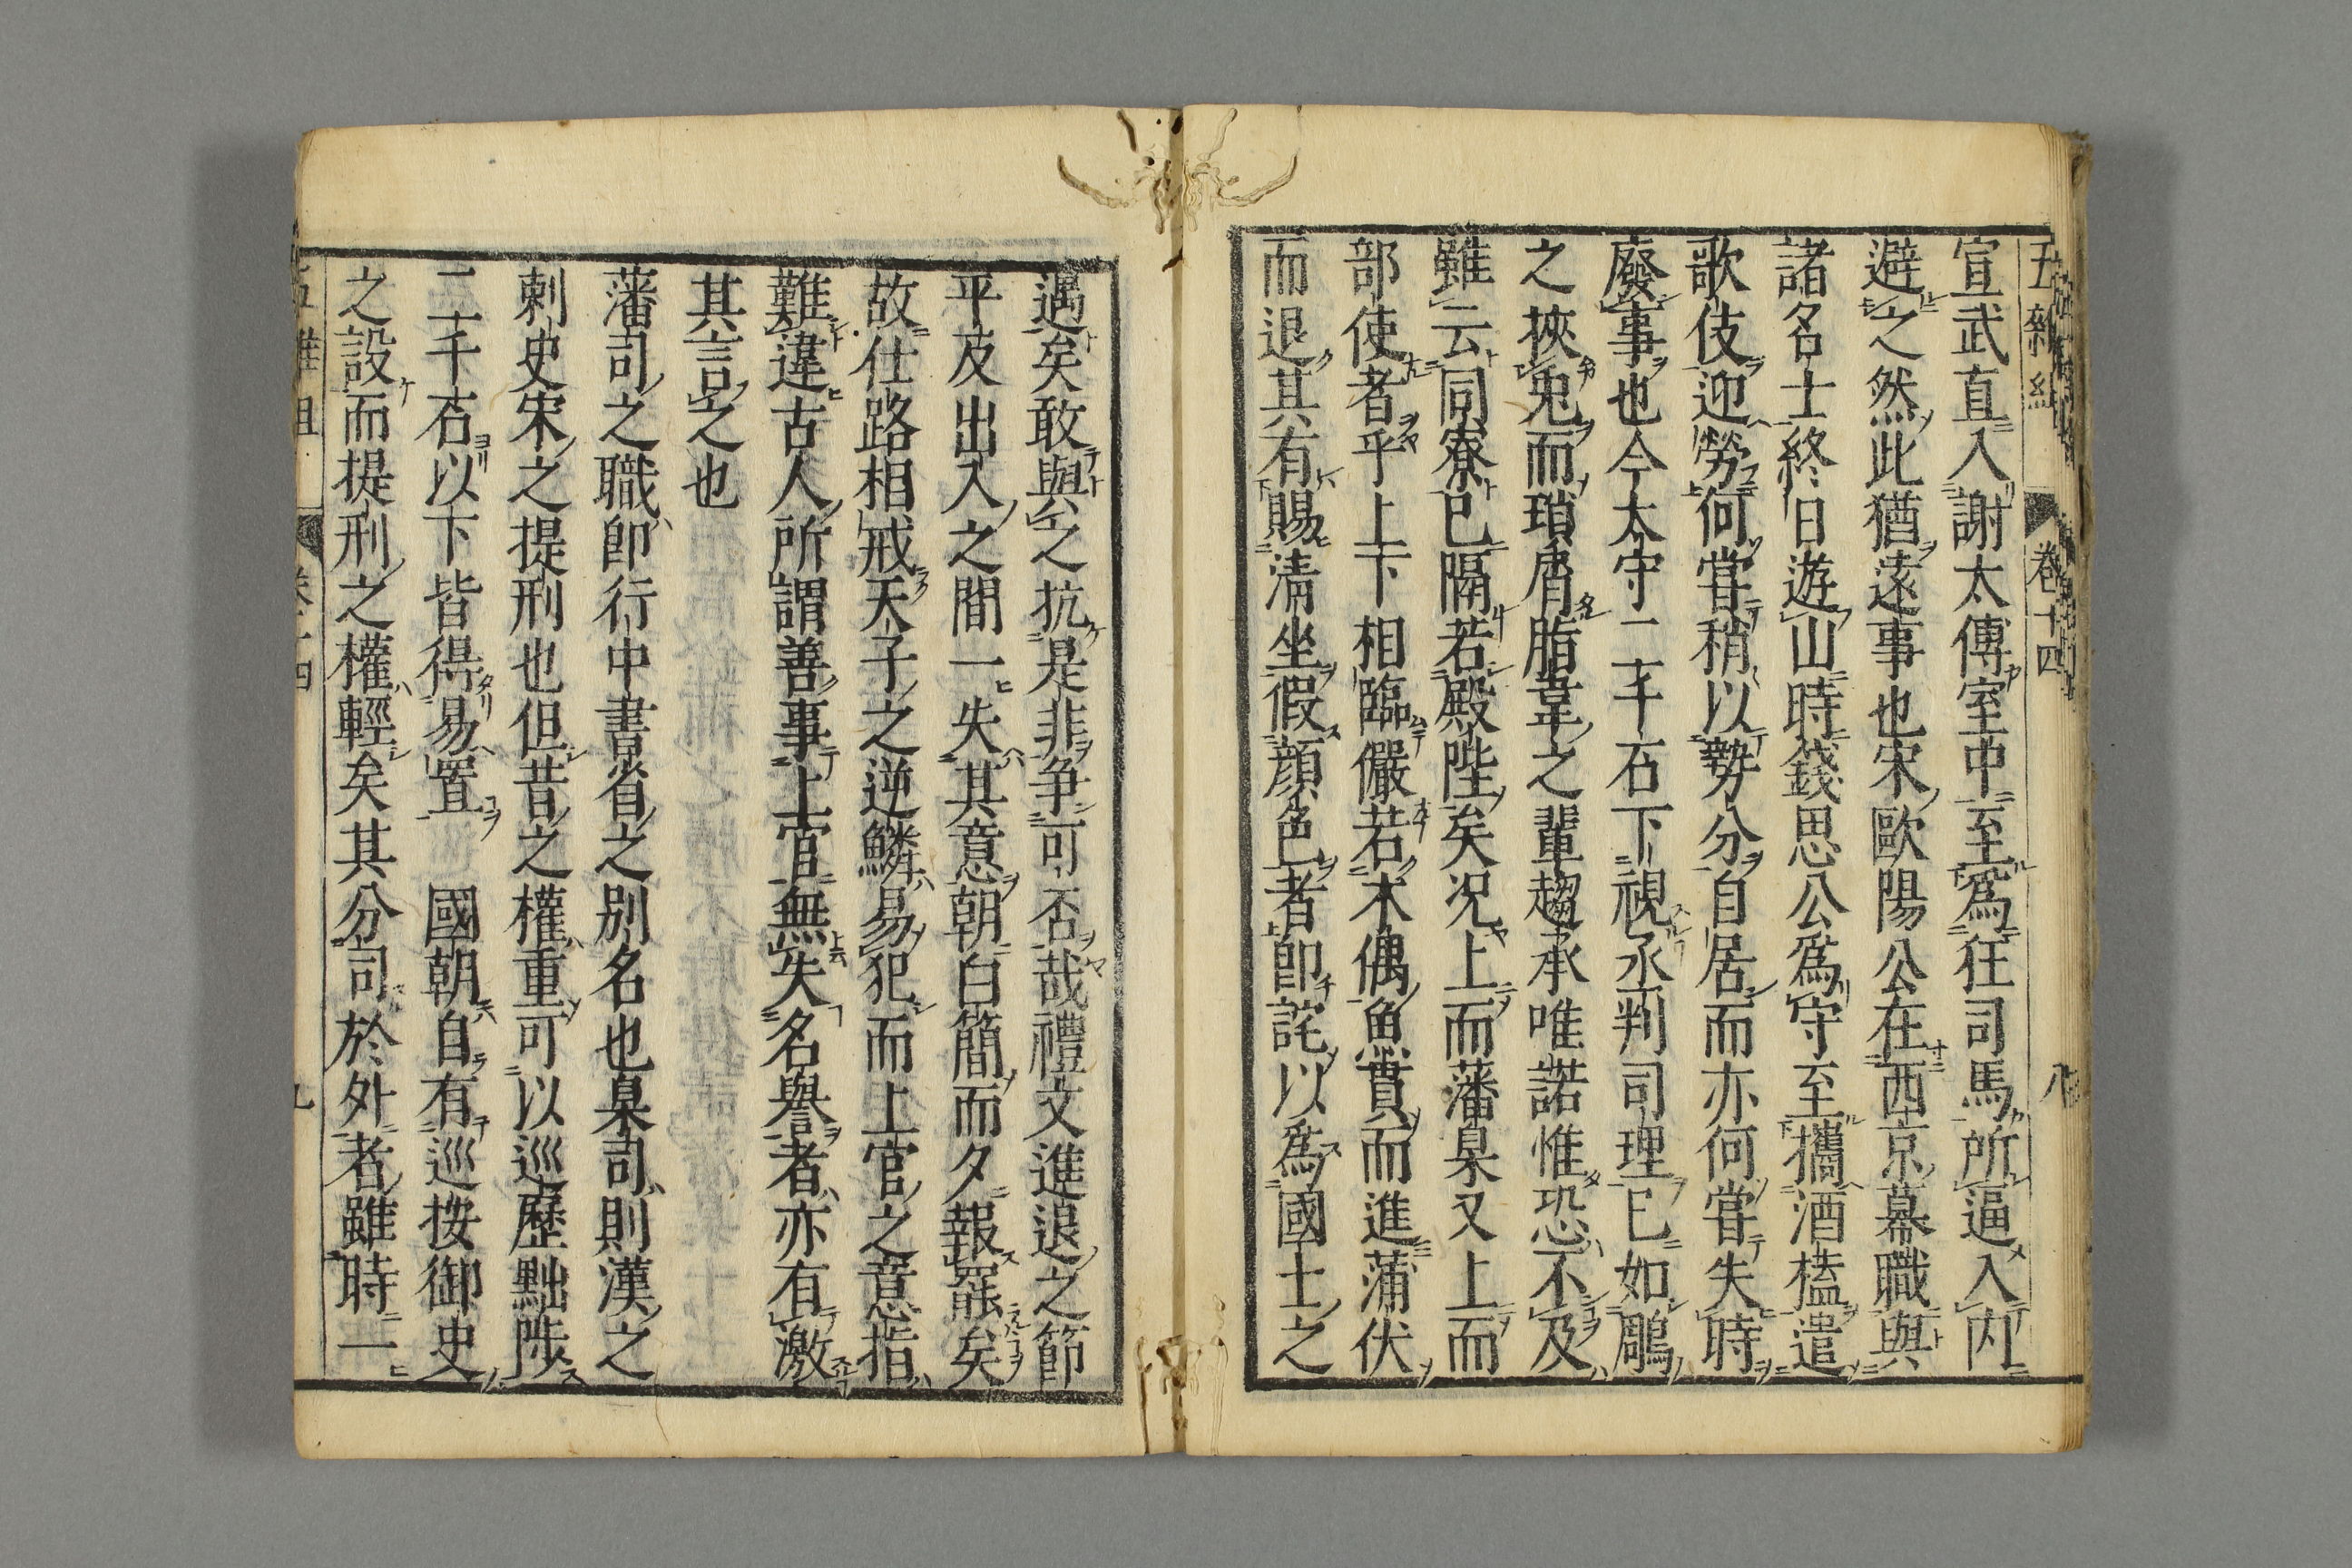 五雜組 卷十四 八
宣武直入謝太傅室中至爲狂司馬所逼入內
避之然此猶遠事也宋歐陽公在西京幕職與
諸名士終日遊山時錢思公爲守至攜酒榼遣
歌伎迎勞何嘗稍以勢分自居而亦何嘗失時
廢事也今太守二千石下視丞判司理已如鵰
之挾兎而瑣屑脂韋之輩趨承唯諾惟恐不及
雖云同寮已隔若殿陛矣况上而藩臬又上而
部使者乎上下相臨儼若木偶魚貫而進蒲伏
而退其有賜淸坐假顏色者卽詫以爲國士之
遇矣敢與之抗是非爭可否哉禮文進退之節
平反出入之間一失其意朝白簡而夕報罷矣
故仕路相戒天子之逆鱗易犯而上官之意指
難違古人所謂善事上官無失名譽者亦有激
其言之也
藩司之職卽行中書省之別名也臬司則漢之
刺史宋之提刑也但昔之權重可以巡歷黜陟
二千石以下皆得易置 國朝自有巡按御史
之設而提刑之權輕矣其分司於外者雖時一
五雜組 卷十四 九